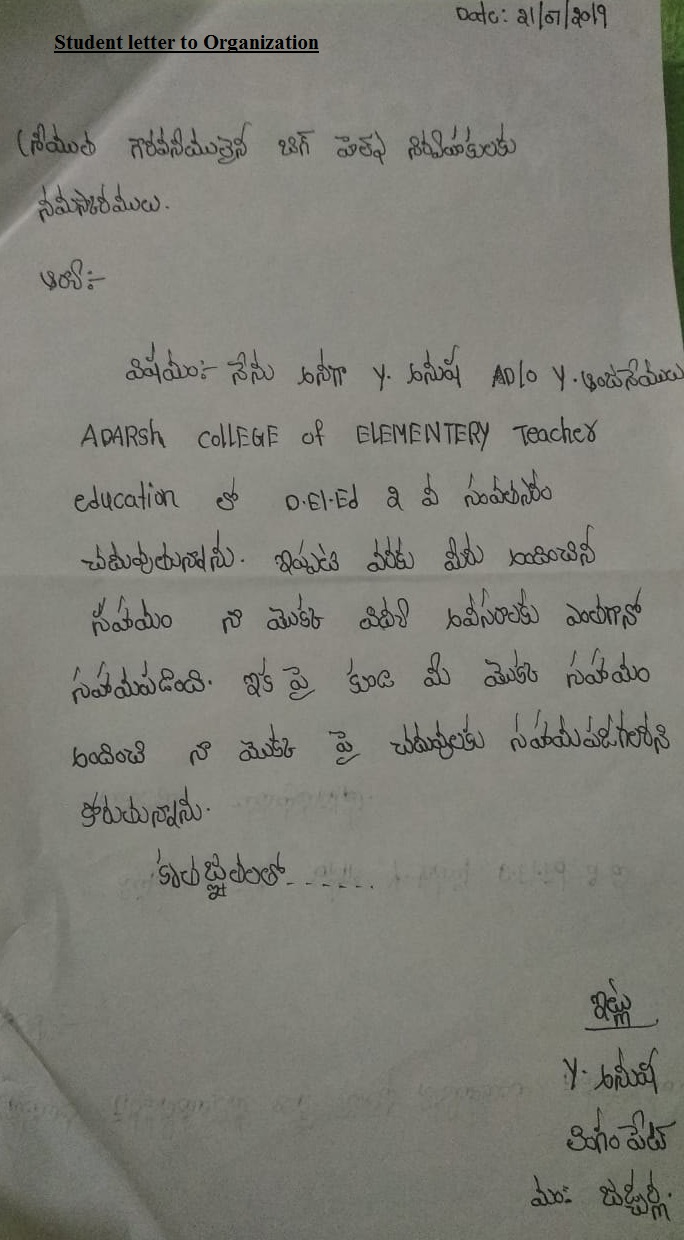 Date: 21/07/2019
Student letter to Organization
శ్రీయుత గౌరవనీయులైన బిగ్ హెల్ప్ నిర్వాహకులకు
నమస్కారములు.
ఆర్య:-
విషయం:- నేను అనగా Y. అనూష AD/O Y. ఆంజనేయులు
ADARSh COllEGE of ELEMENTERY Teacher
education లో D.El.Ed 2 వ సంవత్సరం
చదువుతున్నాను. ఇప్పటి వరకు మీరు అందించిన
సహాయం నా యొక్క విద్య అవసరాలకు ఎంతగానో
సహాయపడింది. ఇక పై కూడ మీ యొక్క సహాయం
అందించి నా యొక్క పై చదువులకు సహాయపడగలరని
కోరుతున్నాను.
కృతజ్ఞతలతో.......
ఇట్లు
Y. అనూష
లింగం పేట్
మం: జడ్చర్ల.